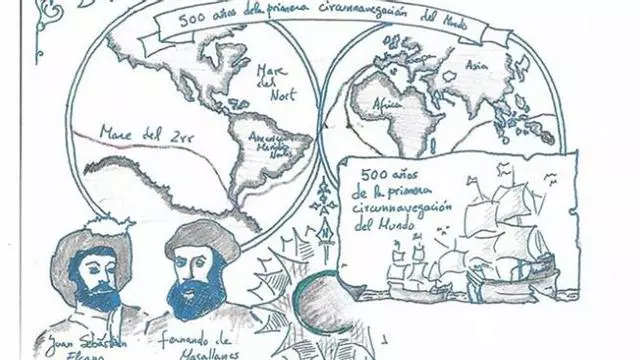 500 años de la primera circunnavegación del Mundo
Mare
del
Nort
Asia
Africa
Mare del Zrr
America
500 años
de la primera
circunnavegación
del Mundo
N
Juan Sebastián
Elcano
Fernando de
Magallanes